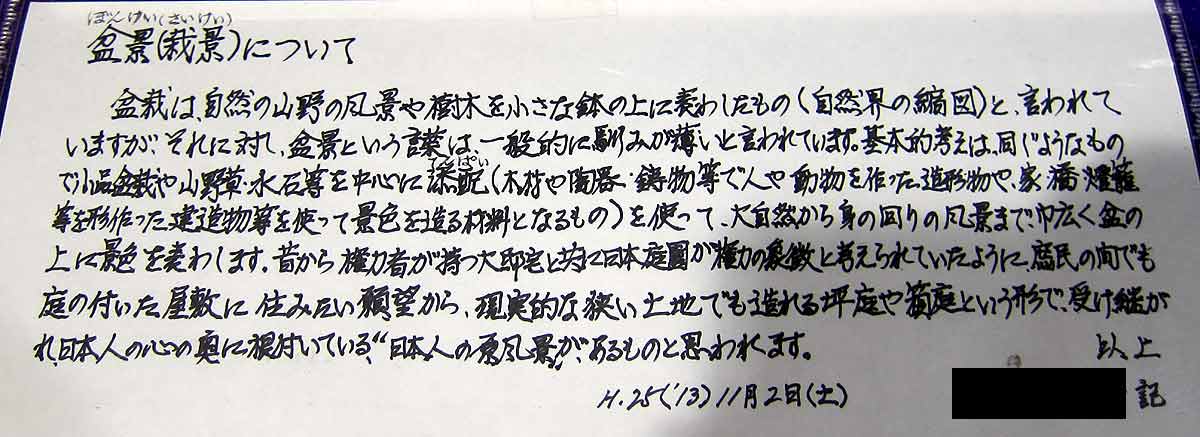 ぼんけい(さいけい)
盆景(栽景)について
盆栽は、自然の山野の風景や樹木を小さな鉢の上に表わしたもの(自然界の縮図)と、言われて
いますが、それに対し、盆景という言葉は、一般的に馴みが薄いと言われています。基本的考えは、同じようなもの
てんぱい
で小品盆栽や山野草・水石等を中心に添配(木材や陶器・鋳物等で人や動物を作った造形物や、家・橋・燈籠
等を形作った建造物等を使って景色を造る材料となるもの)を使って、大自然から身の回りの風景まで、巾広く盆の
上に景色を表わします。昔から権力者が持つ大邸宅と共に日本庭園が権力の象徴と考えられていたように、庶民の間でも
庭の付いた屋敷に住みたい願望から、現実的な狭い土地でも造れる坪庭や箱庭という形で、受け継が
れ、日本人の心の奥に根付いている、“日本人の原風景„が、あるものと思われます。
以上
H.25('13)11月2日(土)
記